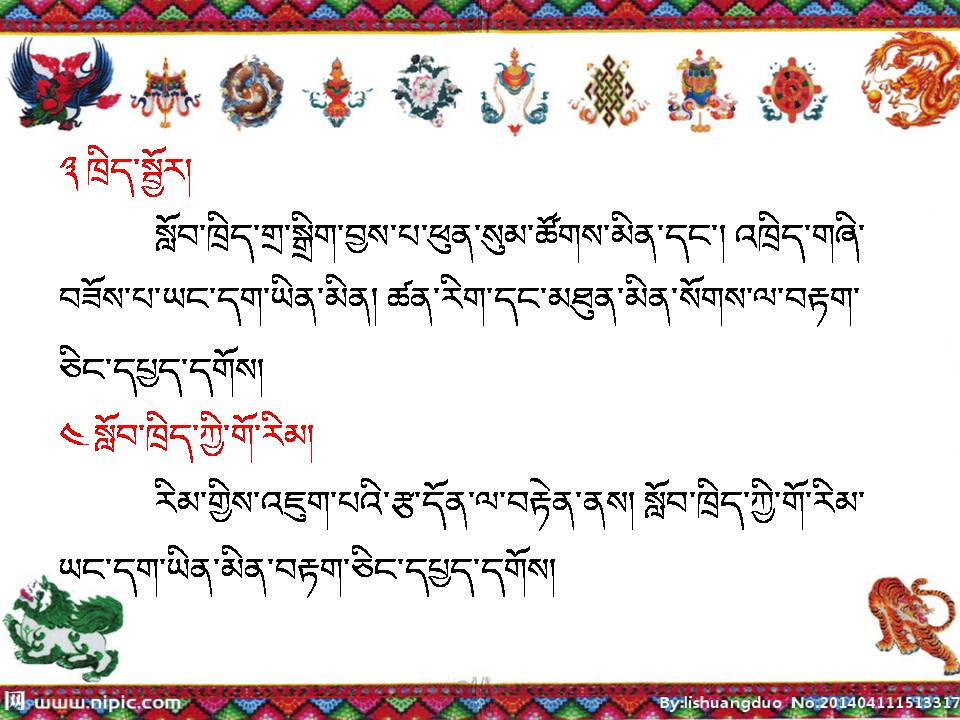 ༣ ཁྲིད་སྦྱོར།
སློབ་ཁྲིད་གྲ་སྒྲིག་བྱས་པ་ཕུན་སུམ་ཚོགས་མིན་དང་། འཁྲིད་གཞི་
བཟོས་པ་ཡང་དག་ཡིན་མིན། ཚན་རིག་དང་མཐུན་མིན་སོགས་ལ་བརྟག་
ཅིང་དཔྱད་དགོས།
༤ སློབ་ཁྲིད་ཀྱི་གོ་རིམ།
རིམ་གྱིས་འཇུག་པའི་རྩ་དོན་ལ་བརྟེན་ནས། སློབ་ཁྲིད་ཀྱི་གོ་རིམ་
ཡང་དག་ཡིན་མིན་བརྟག་ཅིང་དཔྱད་དགོས།
网 www.nipic.com By:lishuangduo No.201404111513317